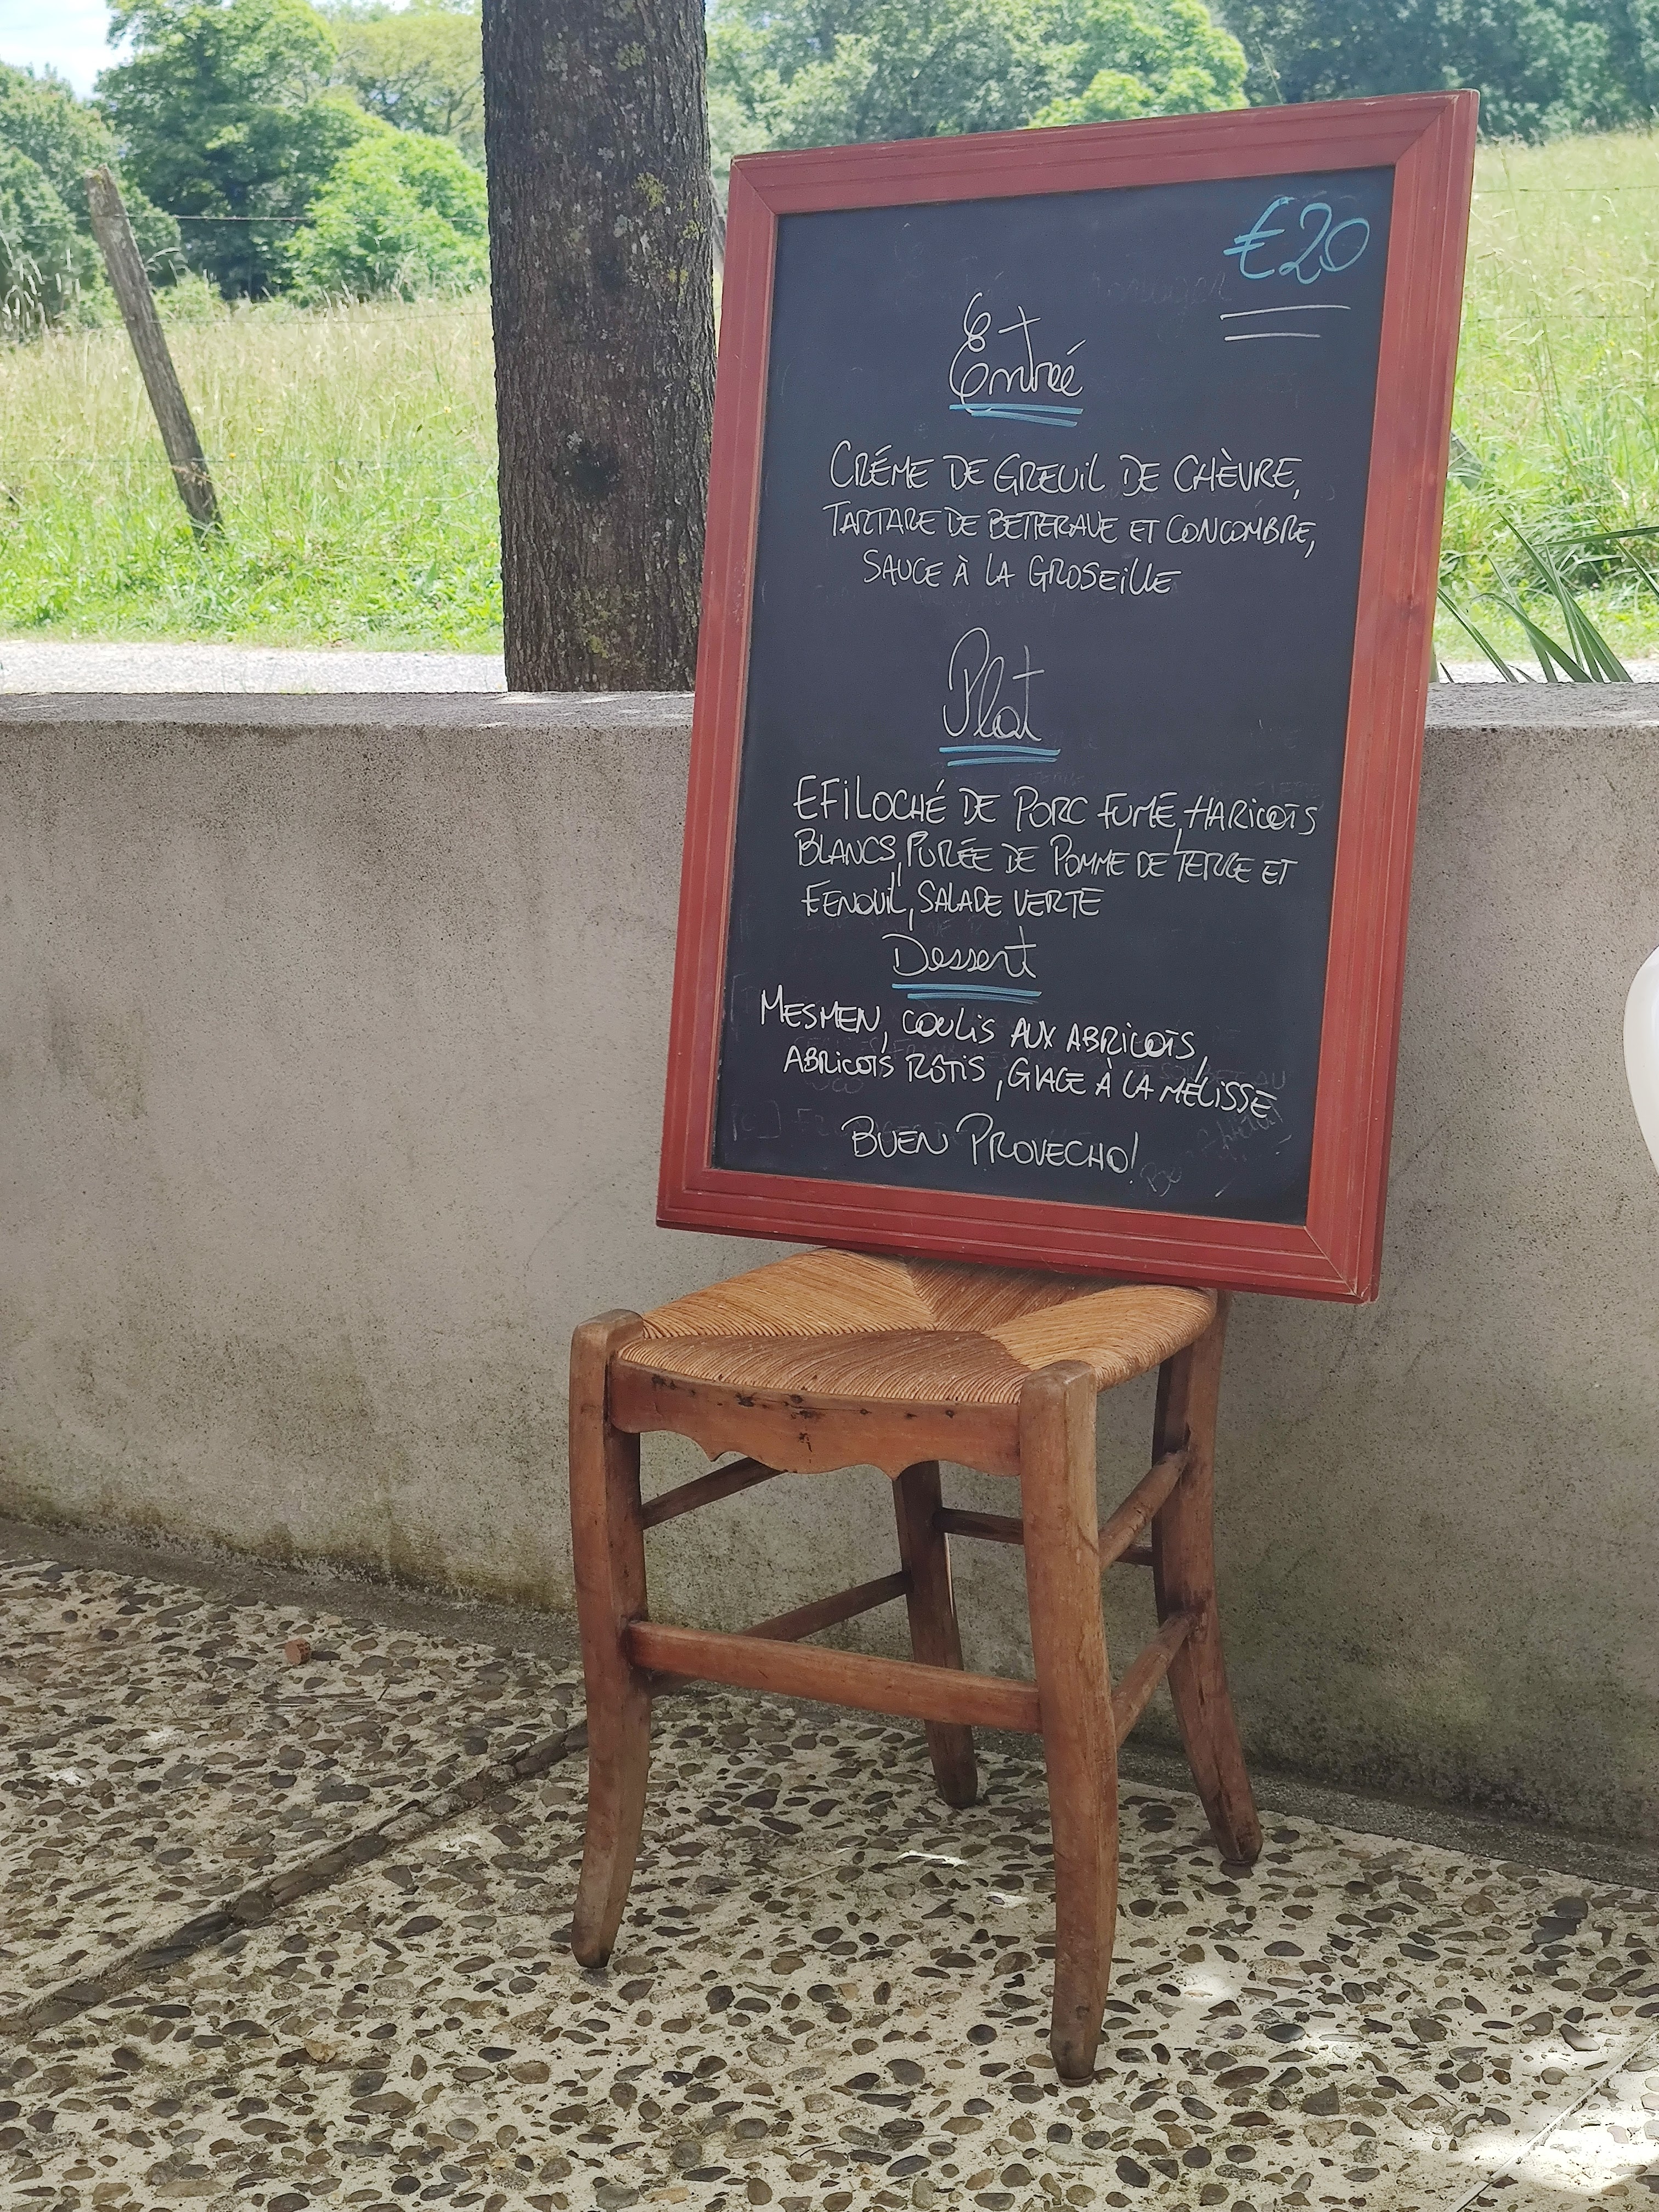 €20
Entreé
CRÉME DE GREUIL DE CHÈVRE,
TARTARE DE BETTERAVE ET CONCOMBRE,
SAUCE À LA GROSEILLE
Plat
EFILOCHÉ DE PORC FUMÉ, HARICOTS
BLANCS, PURÉE DE POMME DE TERRE ET
FENOUIL, SALADE VERTE
Dessert
MESMEN, COULIS AUX ABRICOTS,
ABRICOTS RÔTIS, GLACE À LA MÉLISSE
BUEN PROVECHO!